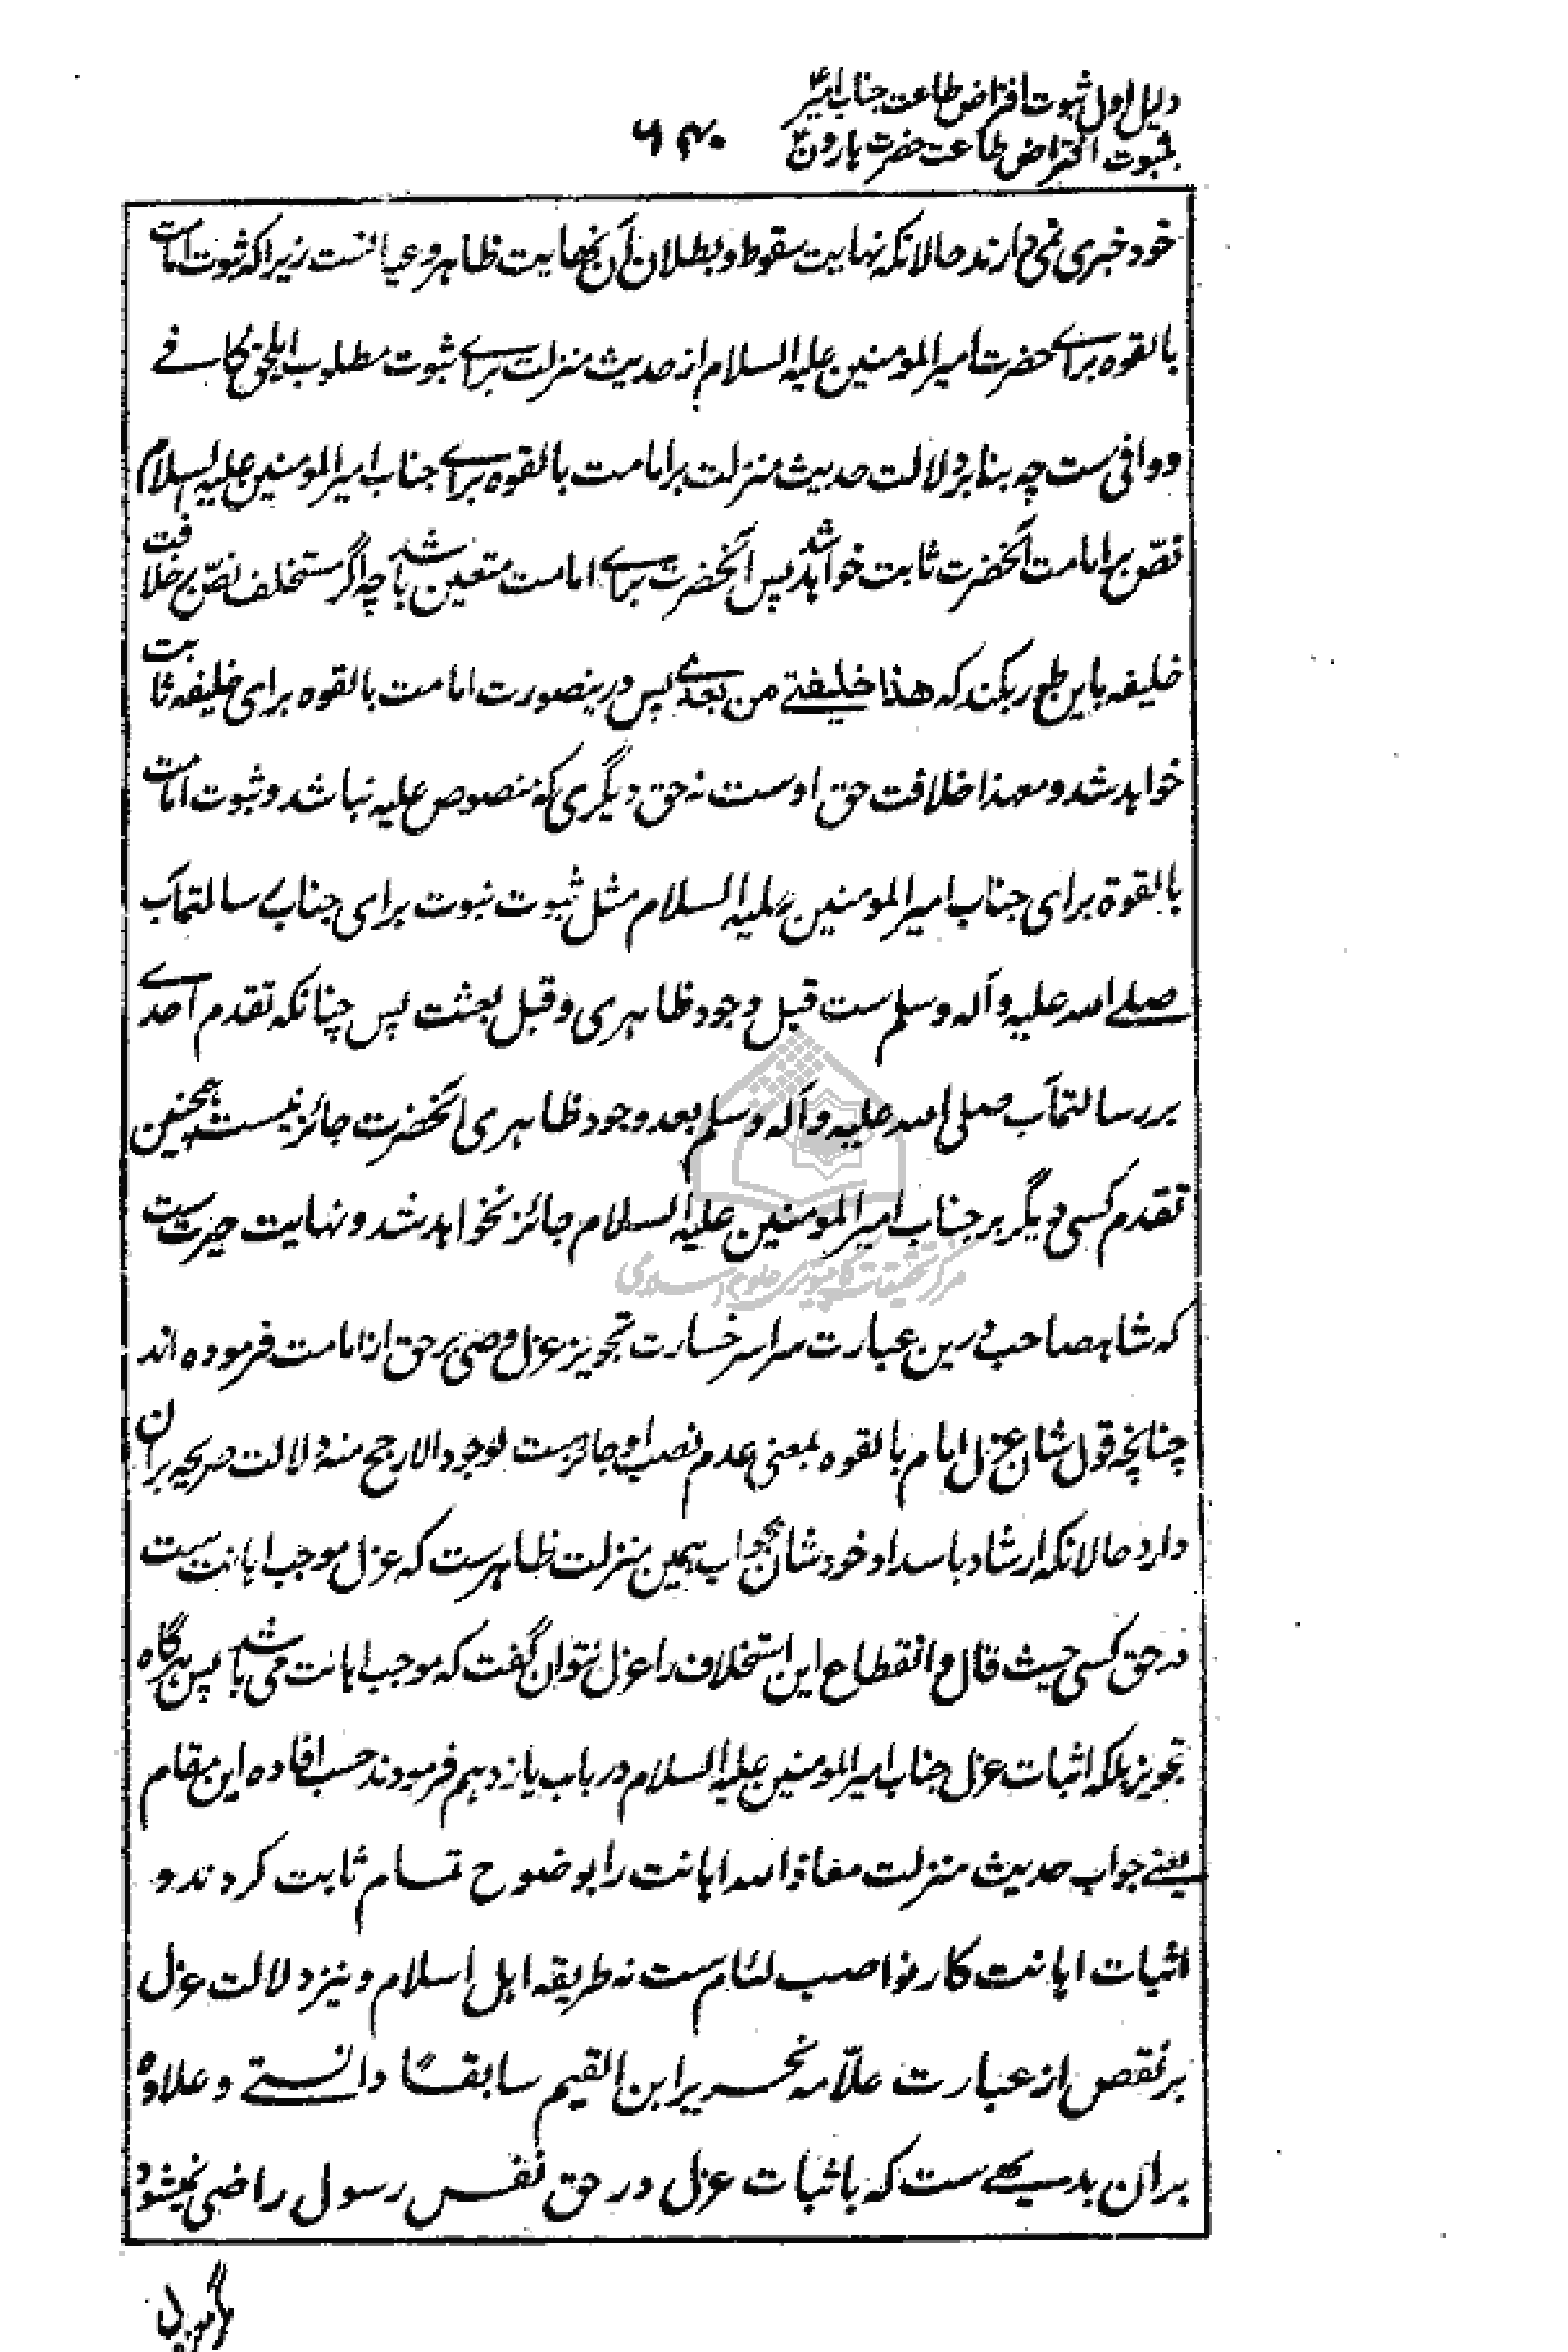 دلیل اول ثبوت افتراض طاعت جناب امیرؑ
بثبوت افتراض طاعت حضرت هارونؑ
۶۳۰
خود خبری نمی دارند حالانکه نهایت سقوط و بطلان آن بنهایت ظاهر و عیانست زیراکه ثبوت امامت
بالقوه برای حضرت امیرالمومنین علیه السلام از حدیث منزلت برای ثبوت مطلوب اهل حق کافی
و وافی ست چه بنا بر دلالت حدیث منزلت بر امامت بالقوه برای جناب امیرالمومنین علیه السلام
نصّ بر امامت آنحضرت ثابت خواهد شد پس آنحضرت برای امامت متعین باشد چه اگر مستخلف نصّ بر خلافت
خلیفه باین طور بکند که هذا خلیفتی من بعدی پس درینصورت امامت بالقوه برای خلیفه ثابت
خواهد شد و معهذا خلافت حق اوست نه حق دیگری که منصوص علیه نباشد و ثبوت امامت
بالقوة برای جناب امیرالمومنین علیه السلام مثل ثبوت نبوت برای جناب رسالتمآب
صلی الله علیه وآله وسلم ست قبل وجود ظاهری و قبل بعثت پس چنانکه تقدم احدی
بر رسالتمآب صلی الله علیه وآله وسلم بعد وجود ظاهری آنحضرت جائز نیست همچنین
تقدم کسی دیگر بر جناب امیرالمومنین علیه السلام جائز نخواهد شد و نهایت حیرت ست
که شاهصاحب درین عبارت سراسر خسارت تجویز عزل وصی برحق از امامت فرموده اند
چنانچه قول شان عزل امام بالقوه بمعنی عدم نصب او جائزست لوجود الارجح منه دلالت صریحه بران
دارد حالانکه ارشاد باسداد خودشان بجواب همین منزلت ظاهرست که عزل موجب اهانت ست
در حق کسی حیث قال و انقطاع این استخلاف را عزل نتوان گفت که موجب اهانت می باشد پس هرگاه
تجویز بلکه اثبات عزل جناب امیرالمومنین علیه السلام در باب یازدهم فرمودند حسب افاده این مقام
یعنی جواب حدیث منزلت معاذ الله اهانت را بوضوح تمام ثابت کردند و
اثبات اهانت کار نواصب لئام ست نه طریقه اهل اسلام و نیز دلالت عزل
بر نقص از عبارت علّامه نحریر ابن القیم سابقًا دانستی و علاوه
بران بدیهی ست که باثبات عزل در حق نفس رسول راضی نمیشود
مرکز تحقیقات کامپیوتری علوم اسلامی